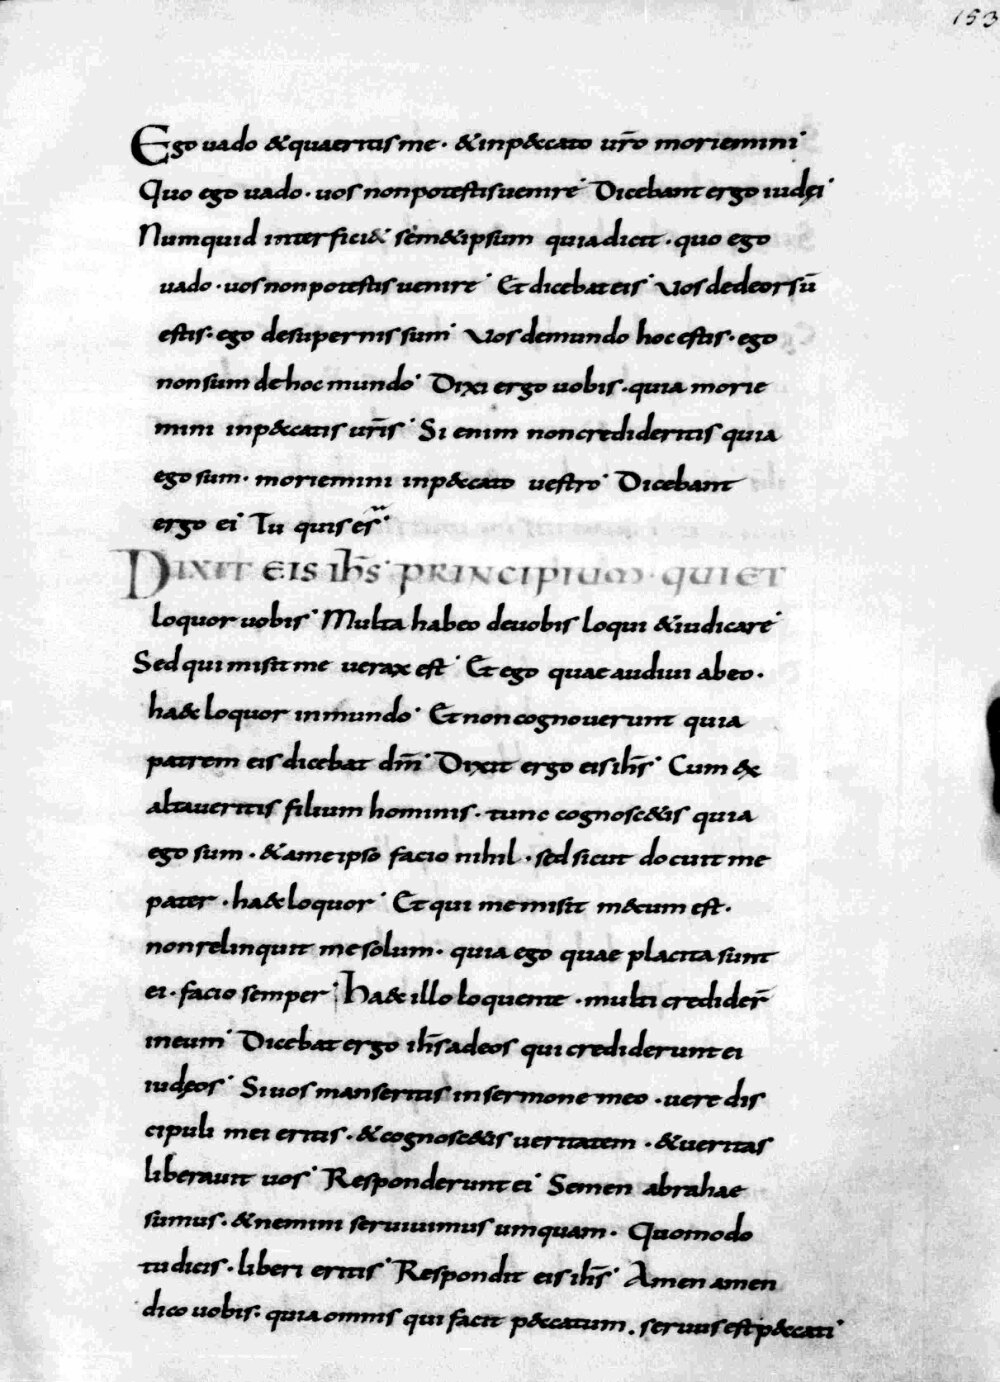 153
Ego uado &quaeritis me · &inp&ccato ur̄o moriemini
Quo ego uado · uos nonpotestisuenire Dicebant ergo iudęi
Numquid interfici& sem&ipsum quiadicit · quo ego
uado · uos nonpotestis uenire Et dicebateis Vos dedeorsū
estis · ego desupernis sum Vos demundo hoc estis · ego
nonsum dehoc mundo Dixi ergo uobis · quia morie
mini inp&ccatis ur̄is Si enim noncredideritis quia
ego sum · moriemini inp&ccato uestro Dicebant
ergo ei Tu quis es
DIXIT EIS ih̄s PRINCIPIUM · QUI ET
loquor uobis Multa habeo deuobis loqui &iudicare
Sed qui misit me uerax est Et ego quae audiui abeo ·
ha&c loquor inmundo Et non cognouerunt quia
patrem eis dicebat dm̄ Dixit ergo eis ih̄s Cum &x
altaueritis filium hominis · tunc cognosc&is quia
ego sum · &ameipso facio nihil · sed sicut docuit me
pater · ha&c loquor Et qui memisit m&cum est ·
nonrelinquit mesolum · quia ego quae placita sunt
ei · facio semper ha&c illo loquente · multi credider̄
ineum Dicebat ergo ih̄s adeos qui crediderunt ei
iudęos Si uos manseritis insermone meo · uere dis
cipuli mei eritis · &cognosc&is ueritatem · &ueritas
liberauit uos Responderunt ei Semen abrahae
sumus · &nemini seruiuimus umquam · Quomodo
tu dicis · liberi eritis Respondit eis ih̄s Amen amen
dico uobis · quia omnis qui facit p&ccatum · seruus est p&ccati